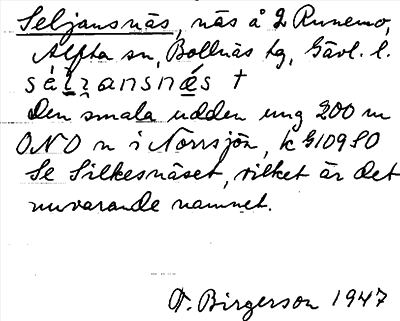 Seljansnäs, näs å 2 Runemo,
Alfta sn, Bollnäs tg, Gävl. l.
Den smala udden ung 200 m
ONO n i Norrsjön, k G10980
Se Silkesnäset, vilket är det
nuvarande namnet.
Birgerson 1947